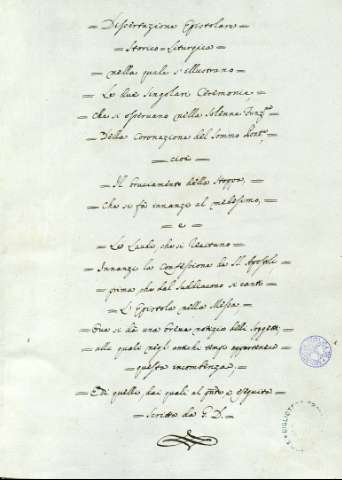 Dissertazione Epistolare
= Storico-Liturgica =
= nella quale s'illustrano =
= Le due Singolari Ceremonie,
= che si osservano nella Solenne Funz.e
= Della Coronazione del Sommo Pont.e
= cioè =
= Il bruciamento della Stoppa, =
= che si fà innanzi al medesimo, =
= e =
= Le Laudi, che si Recitano =
= Innanzi la Confessione de SS. Apostoli,
= prima che dal Suddiacono si canti =
= L'Epistola nella Messa =
= Ove si dà una breve notizia delli Soggetti,
alli quali negl' antichi tempi apparteneva
= questa incombenza, =
= E di quello, dai quali al è eseguita
= Scritta da G. D. =